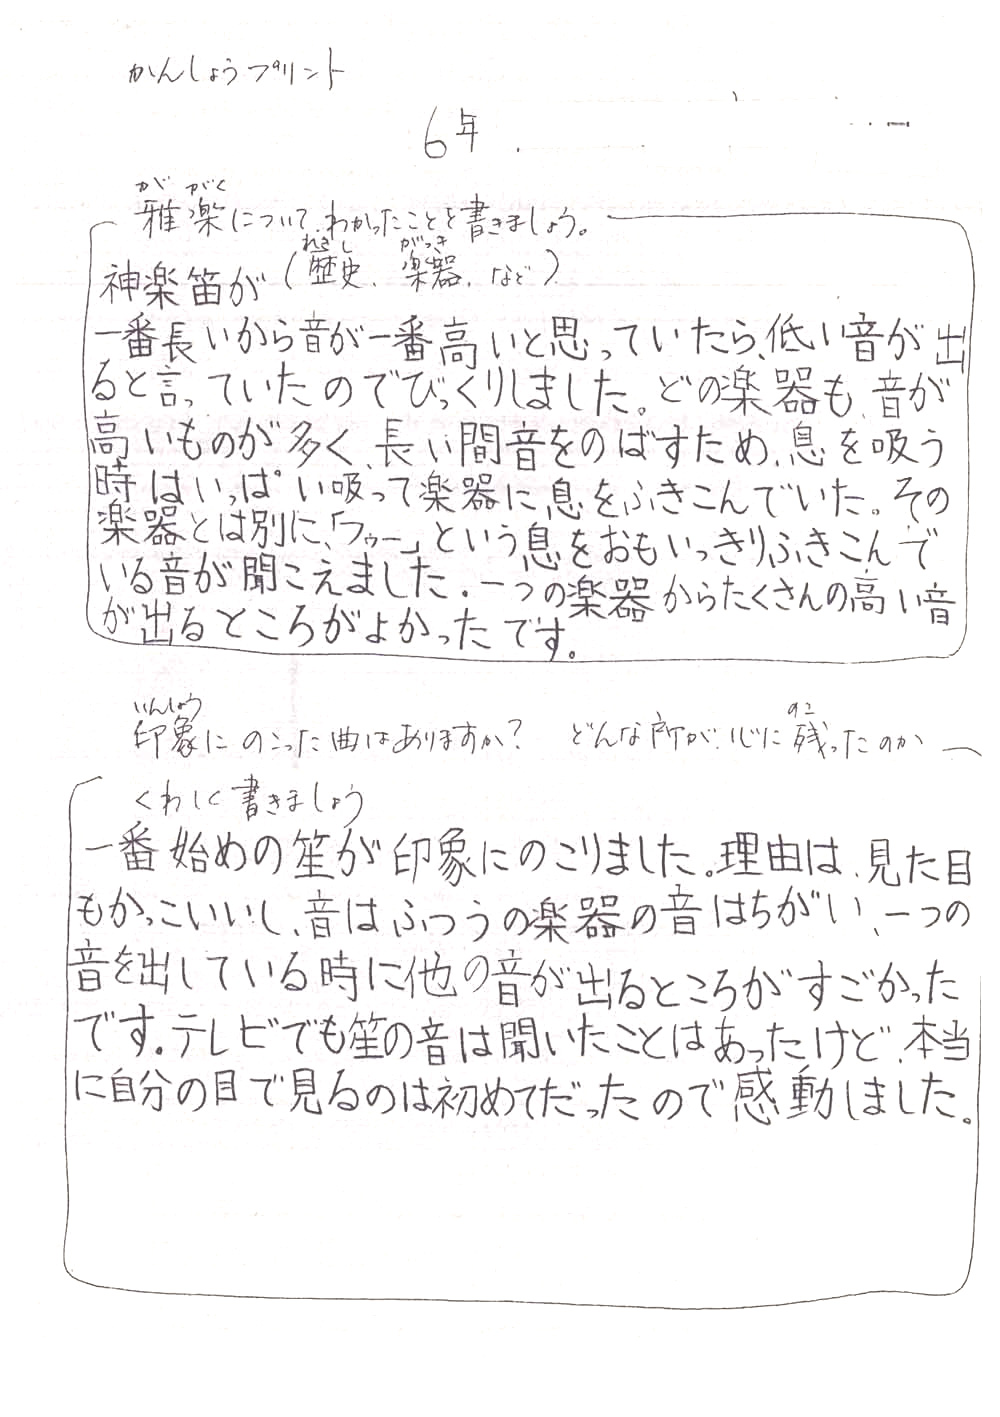 かんしょうプリント
6年
がが く
雅楽について、わかったことを書きましょう。
れきし がっき
(歴史、楽器、など)
神楽笛が
一番長いから音が一番高いと思っていたら、低い音が出
ると言っていたのでびっくりしました。どの楽器も、音が
高いものが多く、長い間音をのばすため、息を吸う
時はいっぱい吸って楽器に息をふきこんでいた。その
楽器とは別に、「フゥー」という息をおもいっきりふきこんで
いる音が聞こえました。一つの楽器からたくさんの高い音
が出るところがよかったです。
いんしょう のこ
印象にのこった曲はありますか? どんな所が、心に残ったのか
くわしく書きましょう
一番始めの笙が印象にのこりました。理由は、見た目
もかっこいいし、音はふつうの楽器の音はちがい、一つの
音を出している時に他の音が出るところがすごかった
です。テレビでも笙の音は聞いたことはあったけど、本当
に自分の目で見るのは初めてだったので感動しました。